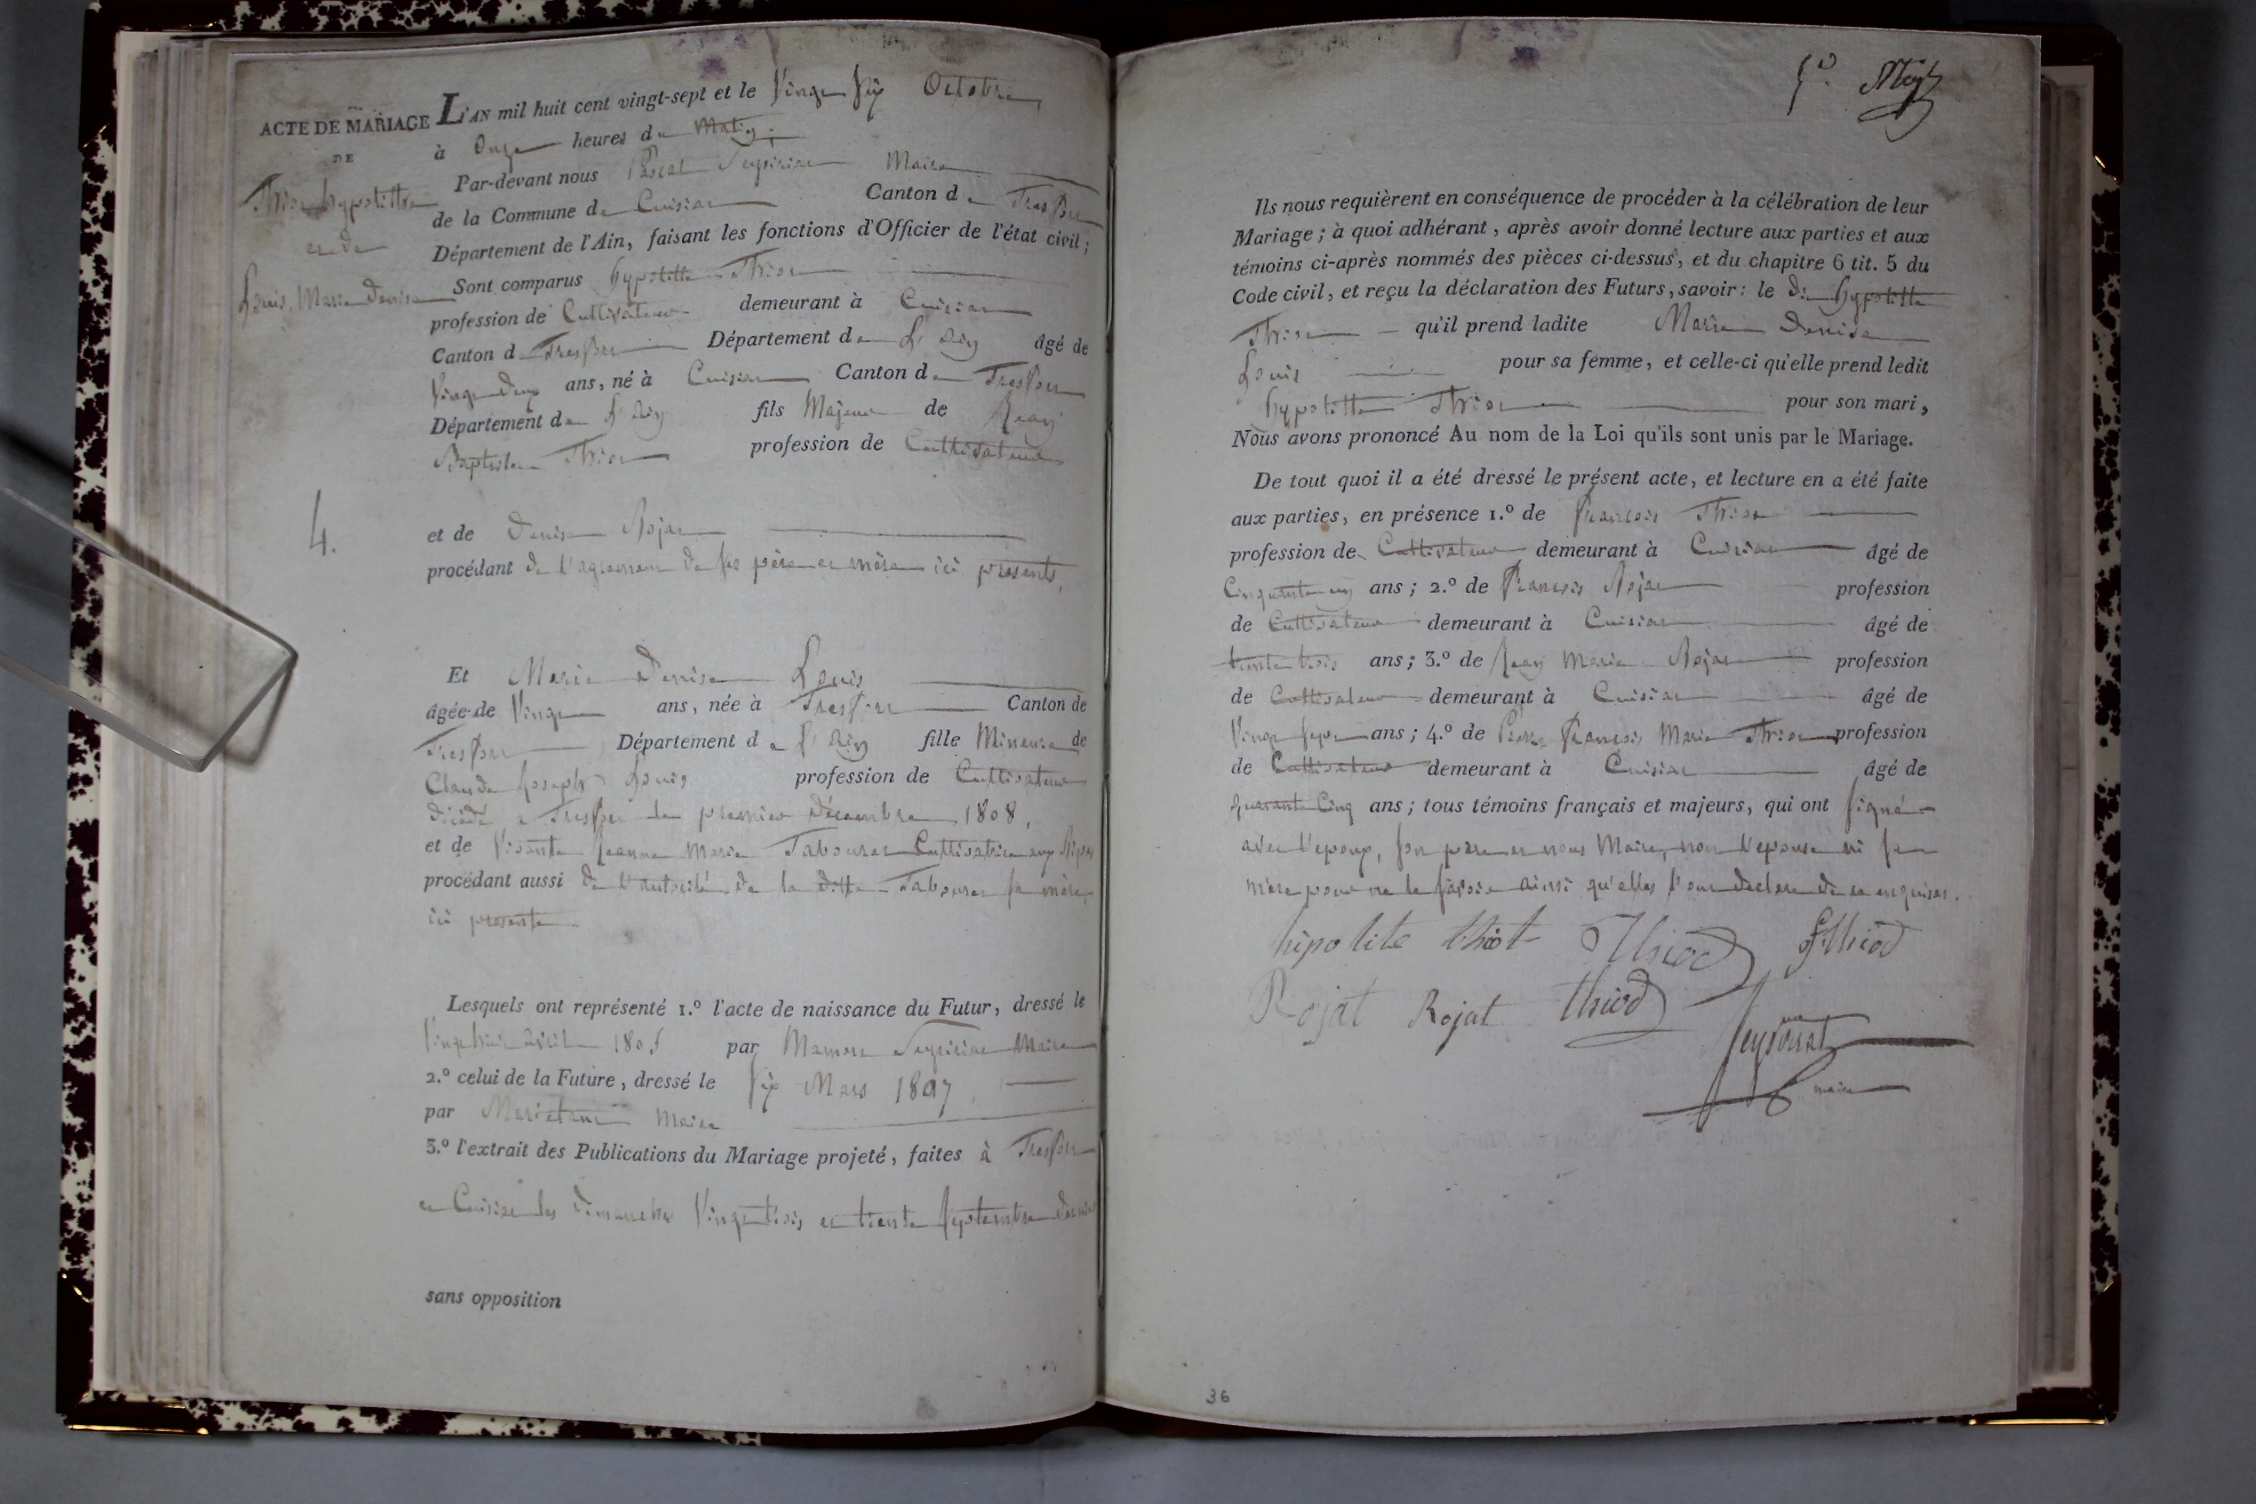 ACTE DE MARIAGE
DE
Thiot hypolitte
et de
Louis, Marie Denise
4.
L'AN mil huit cent vingt-sept et le Vingt Six Octobre
à Onze heures du Matin;
Par-devant nous Pascal Maire
de la Commune de Cuisiat Canton de Treffort
Département de l'Ain, faisant les fonctions d'Officier de l'état civil;
Sont comparus hypolitte Thiot
profession de Cultivateur demeurant à Cuisiat
Canton de Treffort Département de L'Ain âgé de
Vingt deux ans, né à Cuisiat Canton de Treffort
Département de L'Ain fils Majeur de Jean
Baptiste Thiot profession de Cultivateur
et de Denise Rojat
procédant de l'agrement de ses père et mère ici presents,
Et Marie Denise Louis
âgée de Vingt ans, née à Treffort Canton de
Treffort Département de L'Ain fille Mineure de
Claude Joseph Louis profession de Cultivateur
décédé a Treffort le premier Décembre 1808,
et de Vivante Jeanne Marie Tabouret Cultivatrice aux
procédant aussi de l'autorité de la ditte Tabouret sa mère
ici presente
Lesquels ont représenté 1.º l'acte de naissance du Futur, dressé le
Vingt huit avril 1805 par Maire
2.º celui de la Future, dressé le Six Mars 1807
par Maire
3.º l'extrait des Publications du Mariage projeté, faites à Treffort
et Cuisiat les Dimanches Vingt trois et trente Septembre dernier
sans opposition
Ils nous requièrent en conséquence de procéder à la célébration de leur
Mariage; à quoi adhérant, après avoir donné lecture aux parties et aux
témoins ci-après nommés des pièces ci-dessus, et du chapitre 6 tit. 5 du
Code civil, et reçu la déclaration des Futurs, savoir: le dit hypolitte
Thiot qu'il prend ladite Marie Denise
Louis pour sa femme, et celle-ci qu'elle prend ledit
hypolitte Thiot pour son mari,
Nous avons prononcé Au nom de la Loi qu'ils sont unis par le Mariage.
De tout quoi il a été dressé le présent acte, et lecture en a été faite
aux parties, en présence 1.º de François Thiot
profession de Cultivateur demeurant à Cuisiat âgé de
Cinquante un ans; 2.º de François Rojat profession
de Cultivateur demeurant à Cuisiat âgé de
trente trois ans; 3.º de Jean Marie Rojat profession
de Cultivateur demeurant à Cuisiat âgé de
Vingt Sept ans; 4.º de Pierre François Marie Thiot profession
de Cultivateur demeurant à Cuisiat âgé de
quarante Cinq ans; tous témoins français et majeurs, qui ont Signé
avec l'epoux, son pere et nous Maire, non l'epouse ni sa
mere pour ne le savoir ainsi qu'elles l'ont declaré de ce enquises.
hipolite thiot Thiod f thiod
Rojat Rojat thiod
maire
36